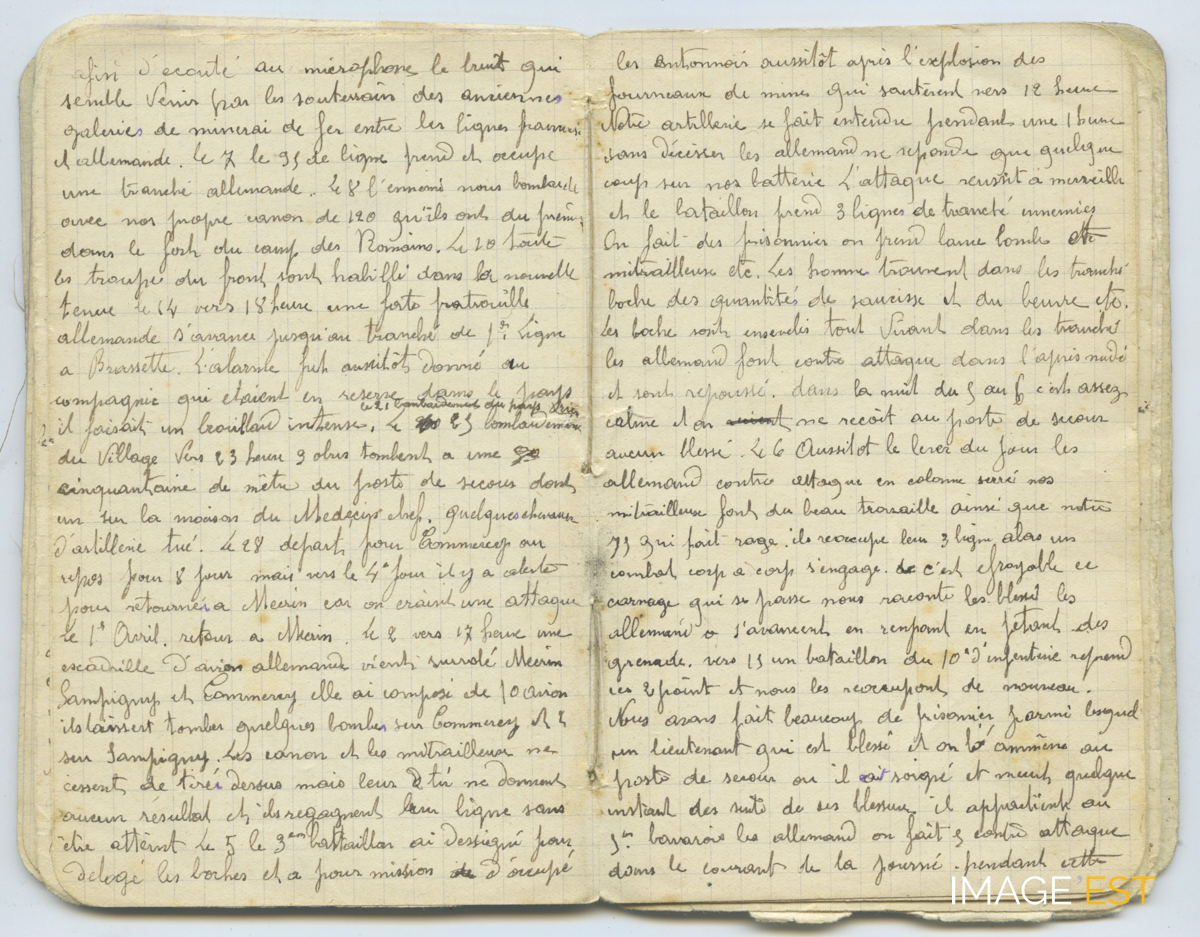 afin d'ecouté au microphone le bruit qui
semble venir par les souterrain des anciennes
galeries de minerai de fer entre les lignes francaise
et allemande. le 7 le 95 de ligne prend et occupe
une tranché allemande. Le 8 l'ennemi nous bombarde
avec nos propre canon de 120 qu'ils ont du prendre
dans le fort du camp des Romains. Le 10 toute
les troupe du front sont habillé dans la nouvelle
tenue le 14 vers 18 heure une forte patrouille
allemande s'avance jusqu'au tranché de 1er Ligne
a Brassette. L'alarme fut aussitôt donné au
compagnie qui etaient en reserve dans le pays
le 21 bombardement du pays
il faisait un brouillard intense. Le 25 bombardement
du village vers 23 heure 3 obus tombent a une
cinquantaine de metre du poste de secours dont
un sur la maison du Medecin chef. quelques chevaux
d'artillerie tué. Le 28 depart pour Commercy au
repos pour 8 jour mais vers le 4e jour il y a alerte
pour retourner a Mecrin car on craint une attaque
le 1er Avril. retour a Mecrin. Le 2 vers 17 heure une
escadrille d'avion allemande vient survolé Mecrin
Sampigny et Commercy elle ai composé de 10 avion
ils laissent tomber quelques bombes sur Commercy et
sur Sampigny. Les canon et les mitrailleuse ne
cessent de tirér dessus mais leur tir ne donnent
aucun résultat et ils regagnent leur ligne sans
être attérint Le 5 le 3em battaillon ai dessigné pour
delogé les boches et a pour mission d'ócupé
les entonnois aussitôt après l'explosion des
fourneaux de mines qui sautèrent vers 12 heure
Notre artillerie se fait entendre pendant une 1 heure
sans décesser les allemand ne reponde que quelque
coup sur nos batterie L'attaque reussit à merveille
et le bataillon prend 3 lignes de trancté ennemies
On fait des prisonnier on prend lance bombe
mitrailleuse etc. Les homme trouvent dans les tranché
boche des quantités de saucisse et du beurre etc.
Les boche sont ensevelis tout vivant dans les tranché
les allemand font contre attaque dans l'après midé
et sont repoussé. dans la nuit du 5 au 6 c'est assez
calme et on ne recoit au poste de secour
aucun blessé. Le 6 Aussitot le lever du jour les
allemand contre attaque en colonne serré nos
mitrailleuse font du beau travaille ainsi que notre
75 qui fait rage. ils reoccupe leur 3 ligne alors un
combat corp a corp s'engage. c'est efroyable ce
carnage qui se passe nous raconte les blessé les
allemand s'avancent en rempant en jetant des
grenade. vers 15 un bataillon du 10e d'infenterie reprend
ces 2 point et nous les reoccupont de nouveau.
Nous avons fait beaucoup de prisonnier parmi lesquel
un lieutenant qui est blessé et on l'amméne au
poste de secour ou il ait soigné et meurt quelque
instant des suite de ses blessure il appartient au
5em bavarois les allemand on fait 5 contre attaque
dans le courant de la journé. pendant cette
IMAGE EST